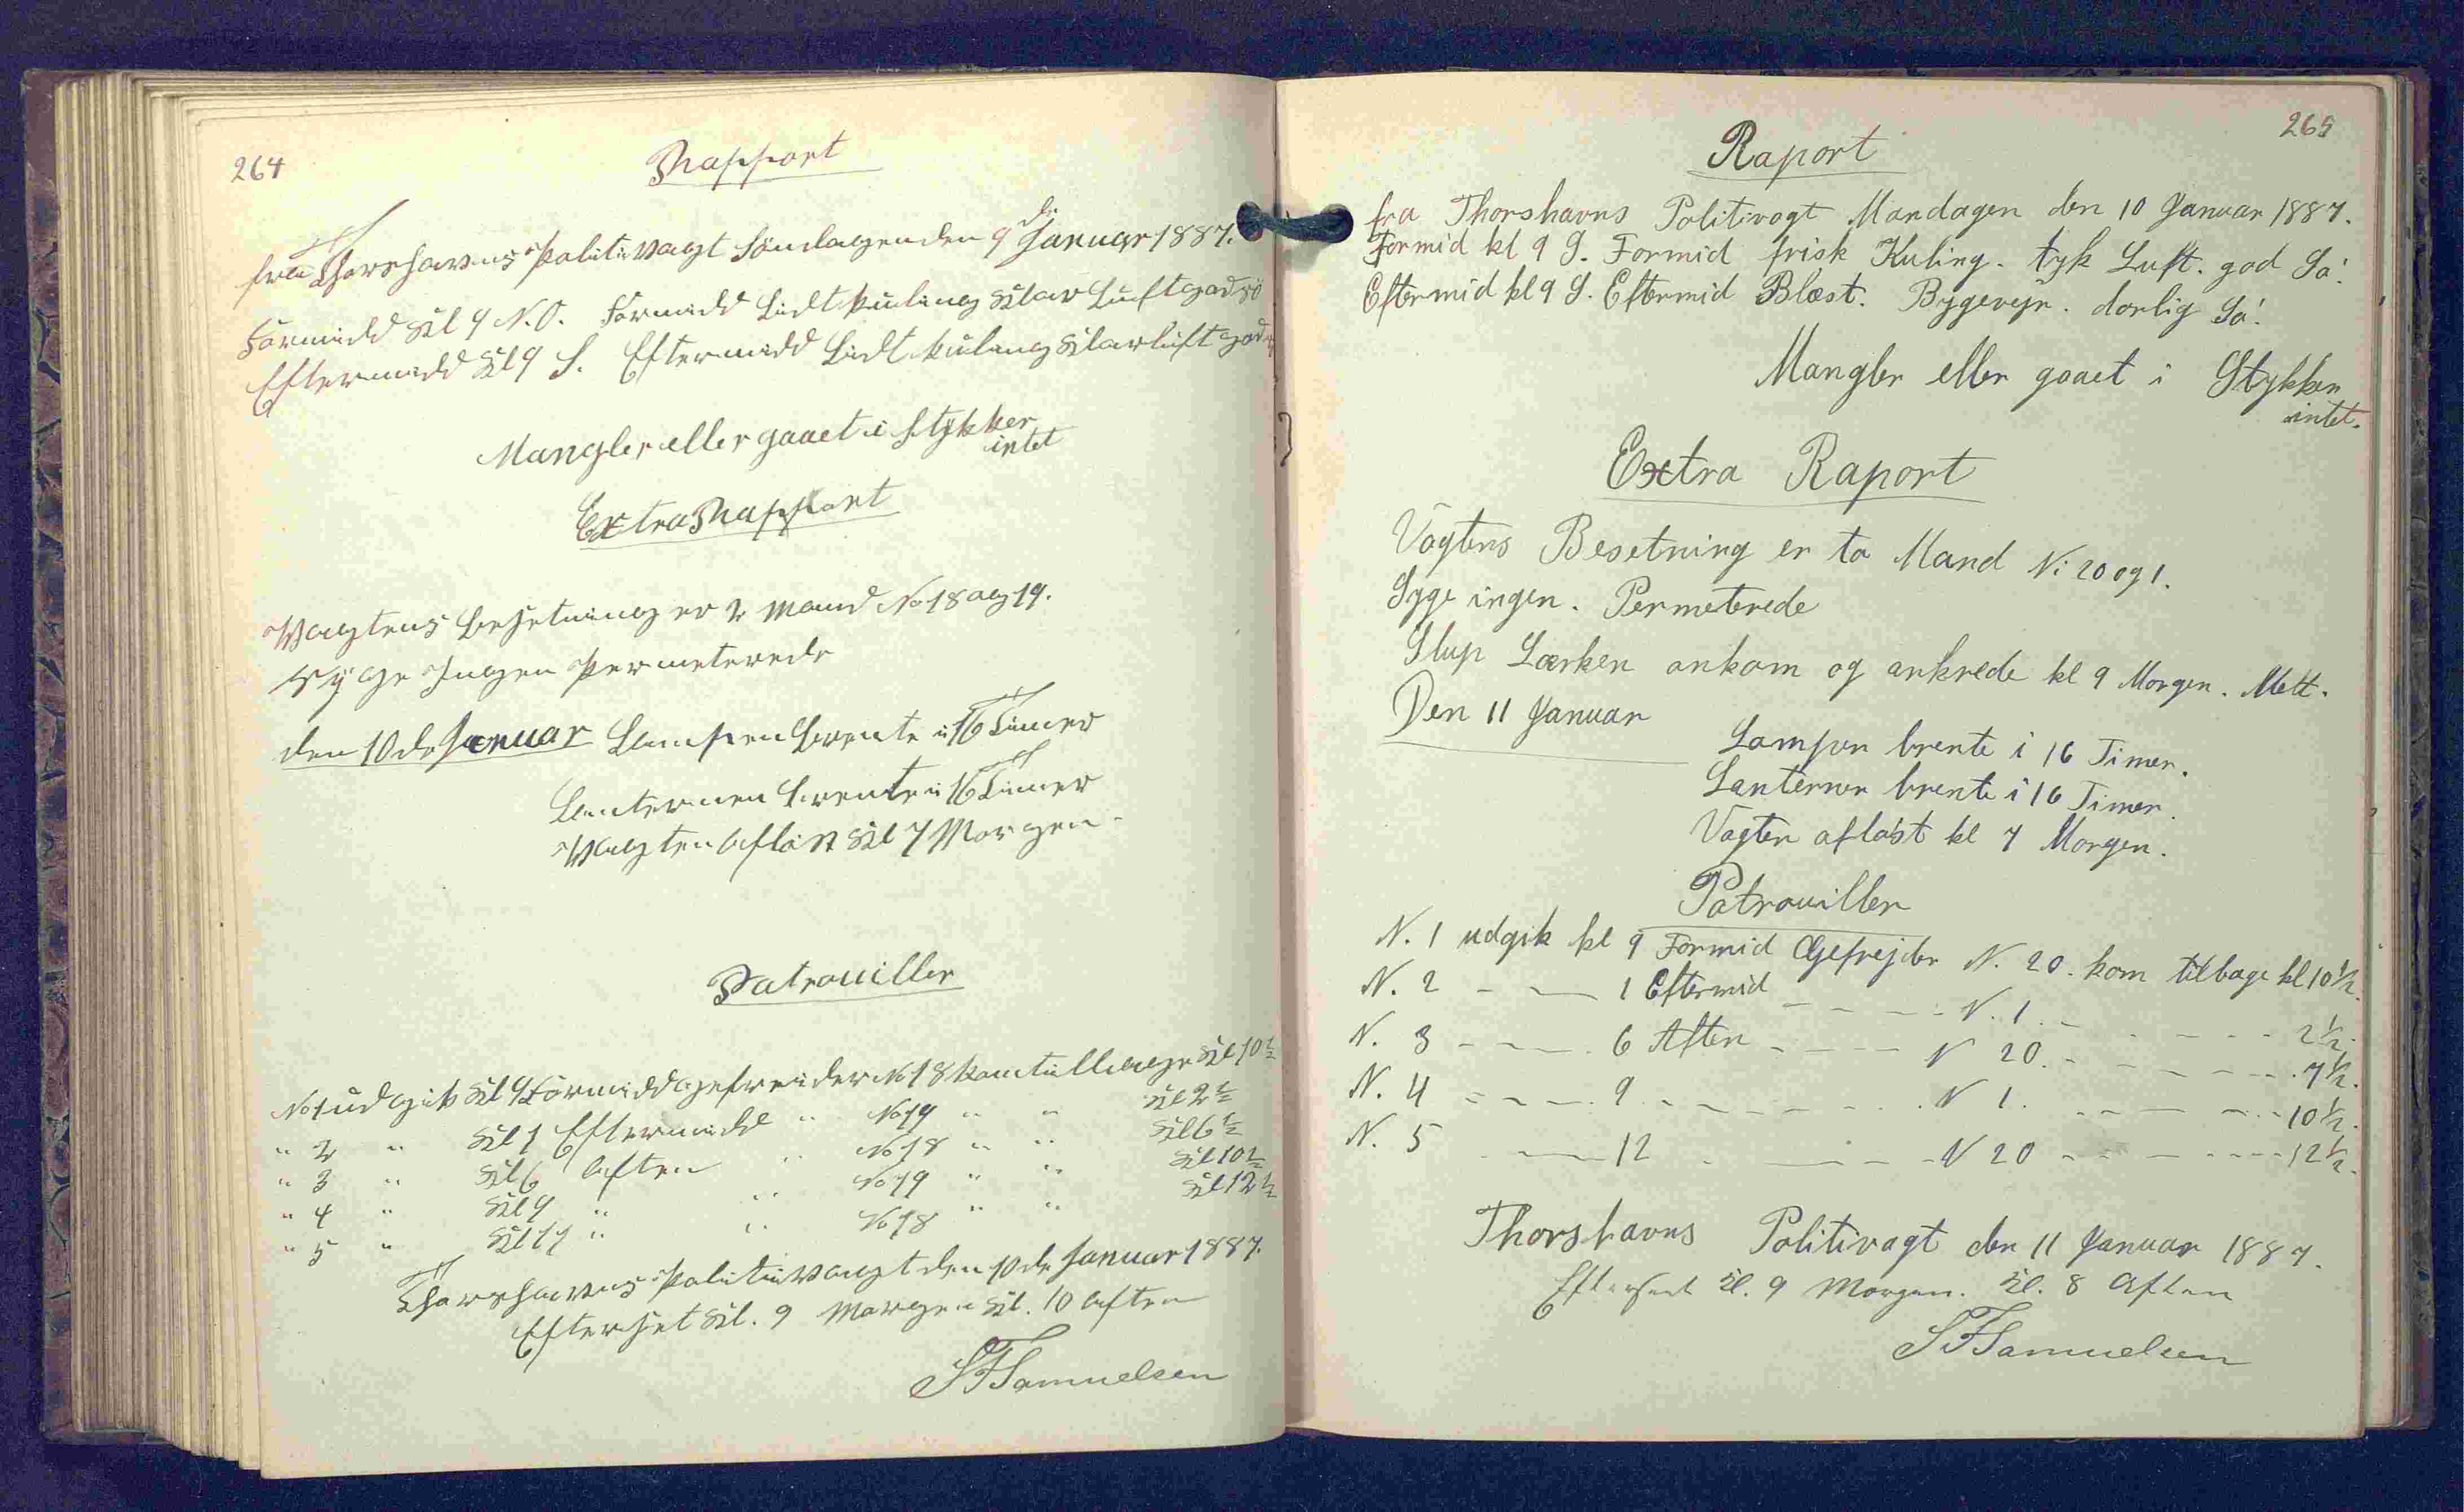 264
Rapport
fra Thorshavns Politivagt Søndagen den 9de Januar 1887.
Formidd Kl 9 N.O. Formidd Lidt Kuling Klar Luft god Sö
Eftermidd Kl 9 S. Eftermidd Lidt Kuling Klar luft god
Mangler eller gaaet i Stykker
intet
Extra Rapport
Vagtens Besetning er 2 Mand No 18 og 19.
Syge Ingen Permeterede
den 10de Januar Lampen brente i 16 Timer
Lanternen brente i 16 Timer
Vagten aflöst Kl 7 Morgen.
Patrouiller
No 1 udgik Kl 9 Formidd Gefreider No 18 kom tilbage Kl 10 1/2
" 2 " Kl 1 Eftermidd " No 19 " " Kl 2 1/2
" 3 " Kl 6 Aften " No 18 " " Kl 6 1/2
" 4 " Kl 9 " " No 19 " " Kl 10 1/2
" 5 " Kl 11 " " No 18 " " Kl 12 1/2
Thorshavns Politivagt den 10de Januar 1887.
Efterset Kl. 9 Morgen Kl. 10 Aften
SFSamuelsen
265
Raport
fra Thorshavns Politivagt Mandagen den 10 Januar 1887.
Formid kl 9 S. Formid frisk Kuling. tyk Luft. god Sö.
Eftermid kl 9 S. Eftermid Blæst. Bygevejr. dorlig Sö.
Mangler eller gaaet i Stykker
intet.
Extra Raport
Vagtens Besetning er to Mand N: 20 og 1.
Syge ingen. Permeterede
Slup Lærken ankom og ankrede kl 9 Morgen. Mett.
Den 11 Januar
Lampen brente i 16 Timer.
Lanternen brente i 16 Timer.
Vagten aflöst kl 7 Morgen.
Patrouiller
N. 1 udgik kl 9 Formid Gefrejder N. 20. kom tilbage kl 10 1/2.
N. 2 - - 1 Eftermid - - - - N. 1. - - - - - 2 1/2.
N. 3 - - - 6 Aften - - - - N 20. - - - - - 7 1/2.
N. 4 - - - 9 - - - - - - N 1. - - - - - 10 1/2.
N. 5 - - - 12 - - - - - N 20 - - - - - 12 1/2.
Thorshavns Politivagt den 11 Januar 1887.
Efterset Kl. 9 Morgen. Kl. 8 Aften
SFSamuelsen